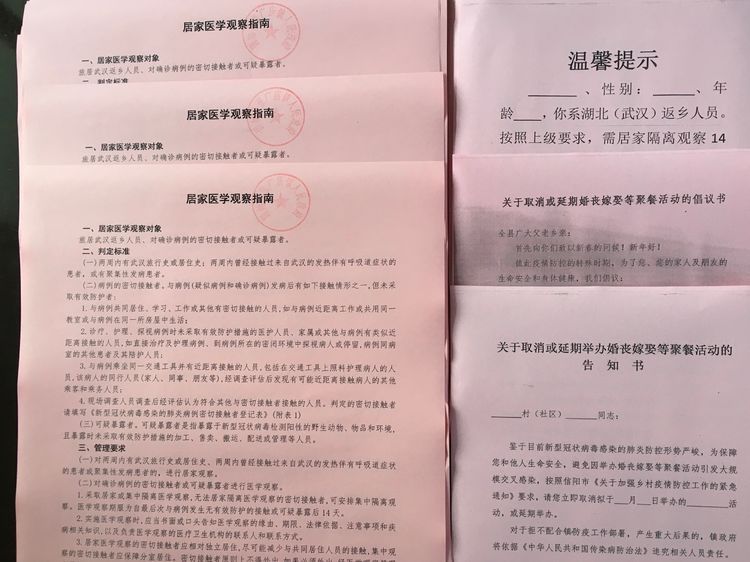 居家医学观察指南
一、居家医学观察对象
旅居武汉返乡人员、对确诊病例的密切接触者或可疑暴露者。
二、判定标准
居家医学观察指南
一、居家医学观察对象
旅居武汉返乡人员、对确诊病例的密切接触者或可疑暴露者。
居家医学观察指南
一、居家医学观察对象
旅居武汉返乡人员、对确诊病例的密切接触者或可疑暴露者。
二、判定标准
(一)两周内有武汉旅行史或居住史；两周内曾经接触过来自武汉的发热伴有呼吸道症状的
患者，或有聚集性发病患者。
(二)病例的密切接触者，与病例(疑似病例和确诊病例)发病后有如下接触情形之一，但未采
取有效防护者：
1.与病例共同居住、学习、工作或其他有密切接触的人员，如与病例近距离工作或共用同一
教室或与病例在同一所房屋中生活；
2.诊疗、护理、探视病例时未采取有效防护措施的医护人员、家属或其他与病例有类似近
距离接触的人员，如直接治疗及护理病例、到病例所在的密闭环境中探视病人或停留，病例同病
室的其他患者及其陪护人员；
3.与病例乘坐同一交通工具并有近距离接触人员，包括在交通工具上照料护理病人的人
员，该病人的同行人员(家人、同事、朋友等)，经调查评估后发现有可能近距离接触病人的其他
乘客和乘务人员；
4.现场调查人员调查后经评估认为符合其他与密切接触者接触的人员。判定的密切接触者
请填写《新型冠状病毒感染的肺炎病例密切接触者登记表》(附表1)
(三)可疑暴露者。可疑暴露者是指暴露于新型冠状病毒检测阳性的野生动物、物品和环境，
且暴露时未采取有效防护措施的加工、售卖、搬运、配送或管理等人员。
三、管理要求
(一)对两周内有武汉旅行史或居住史、两周内曾经接触过来自武汉的发热伴有呼吸道症状
的患者或聚集性发病患者的，进行居家观察。
(二)对确诊病例的密切接触者或可疑暴露者进行医学观察。
1.采取居家或集中隔离医学观察，无法居家隔离医学观察的密切接触者，可安排集中隔离观
察。医学观察期限为自最后次与病例发生无有效防护的接触或可疑暴露后14天。
2.实施医学观察时，应当书面或口头告知医学观察的缘由、期限、法律依据、注意事项和疾
病相关知识，以及负责医学观察的医疗卫生机构的联系人和联系方式。
3.居家医学观察的密切接触者应相对独立居住，尽可能减少与共同居住人员的接触，集中观
察的密切接触者应保障分室居住。
温馨提示
______、性别：____、年
龄____，你系湖北（武汉）返乡人员。
按照上级要求，需居家隔离观察14
关于取消或延期婚丧嫁娶等聚餐活动的倡议书
全县广大父老乡亲：
首先向你们致以新春的问候！新年好！
值此疫情防控的特殊时期，为了您、您的家人及朋友的
生命安全和身体健康，我们倡议：
关于取消或延期举办婚丧嫁娶等聚餐活动的
告 知 书
______村（社区）______同志：
鉴于目前新型冠状病毒感染的肺炎防控形势严峻，为保障
您和他人生命安全，避免因举办婚丧嫁娶等聚餐活动引发大规
模交叉感染，按照信阳市《关于加强乡村疫情防控工作的紧急
通知》要求，请您立即取消拟于___月___日举办的______活
动，或延期举办。
对于拒不配合镇防疫工作部署，产生重大后果的，镇政府
将依据《中华人民共和国传染病防治法》追究相关人员责任。